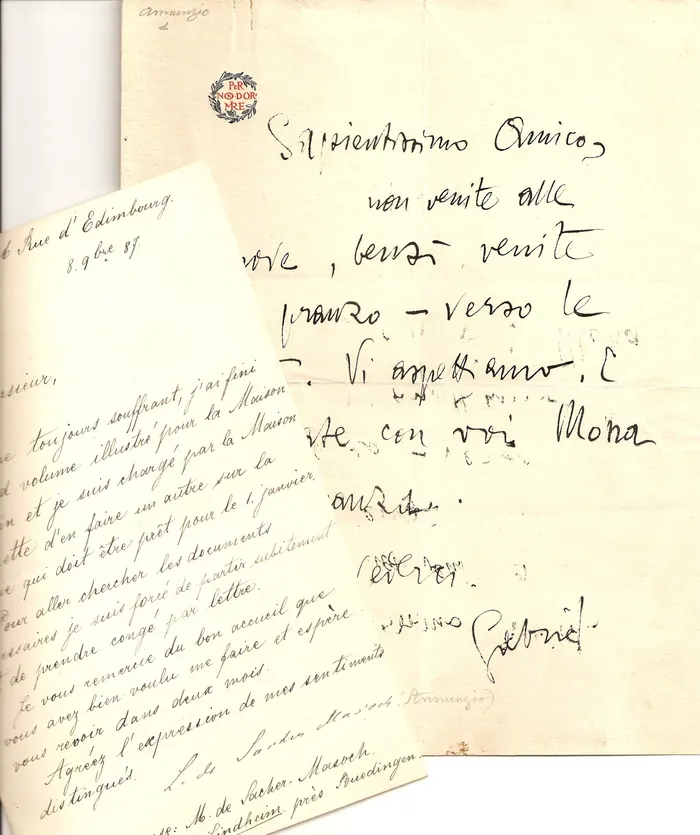 Annunzio
PER
NON DOR
MIRE
Sapientissimo Amico,
non venite alle
nove, bensì venite
pranzo — verso le
Vi aspettiamo. E
con voi Mona
Gabriel
Annunzio)
6 Rue d'Edimbourg.
8. 9bre 87.
sieur,
toujours souffrant, j'ai fini
volume illustré pour la Maison
en et je suis chargé par la Maison
ette d'en faire un autre sur la
qui doit être prêt pour le 1. janvier.
Pour aller chercher les documents
essaires je suis forcé de partir subitement
de prendre congé par lettre.
Je vous remercie du bon accueil que
vous avez bien voulu me faire et espère
vous revoir dans deux mois.
Agréez l'expression de mes sentiments
distingués.
L. de Sacher Masoch
se: M. de Sacher-Masoch.
Lindheim près